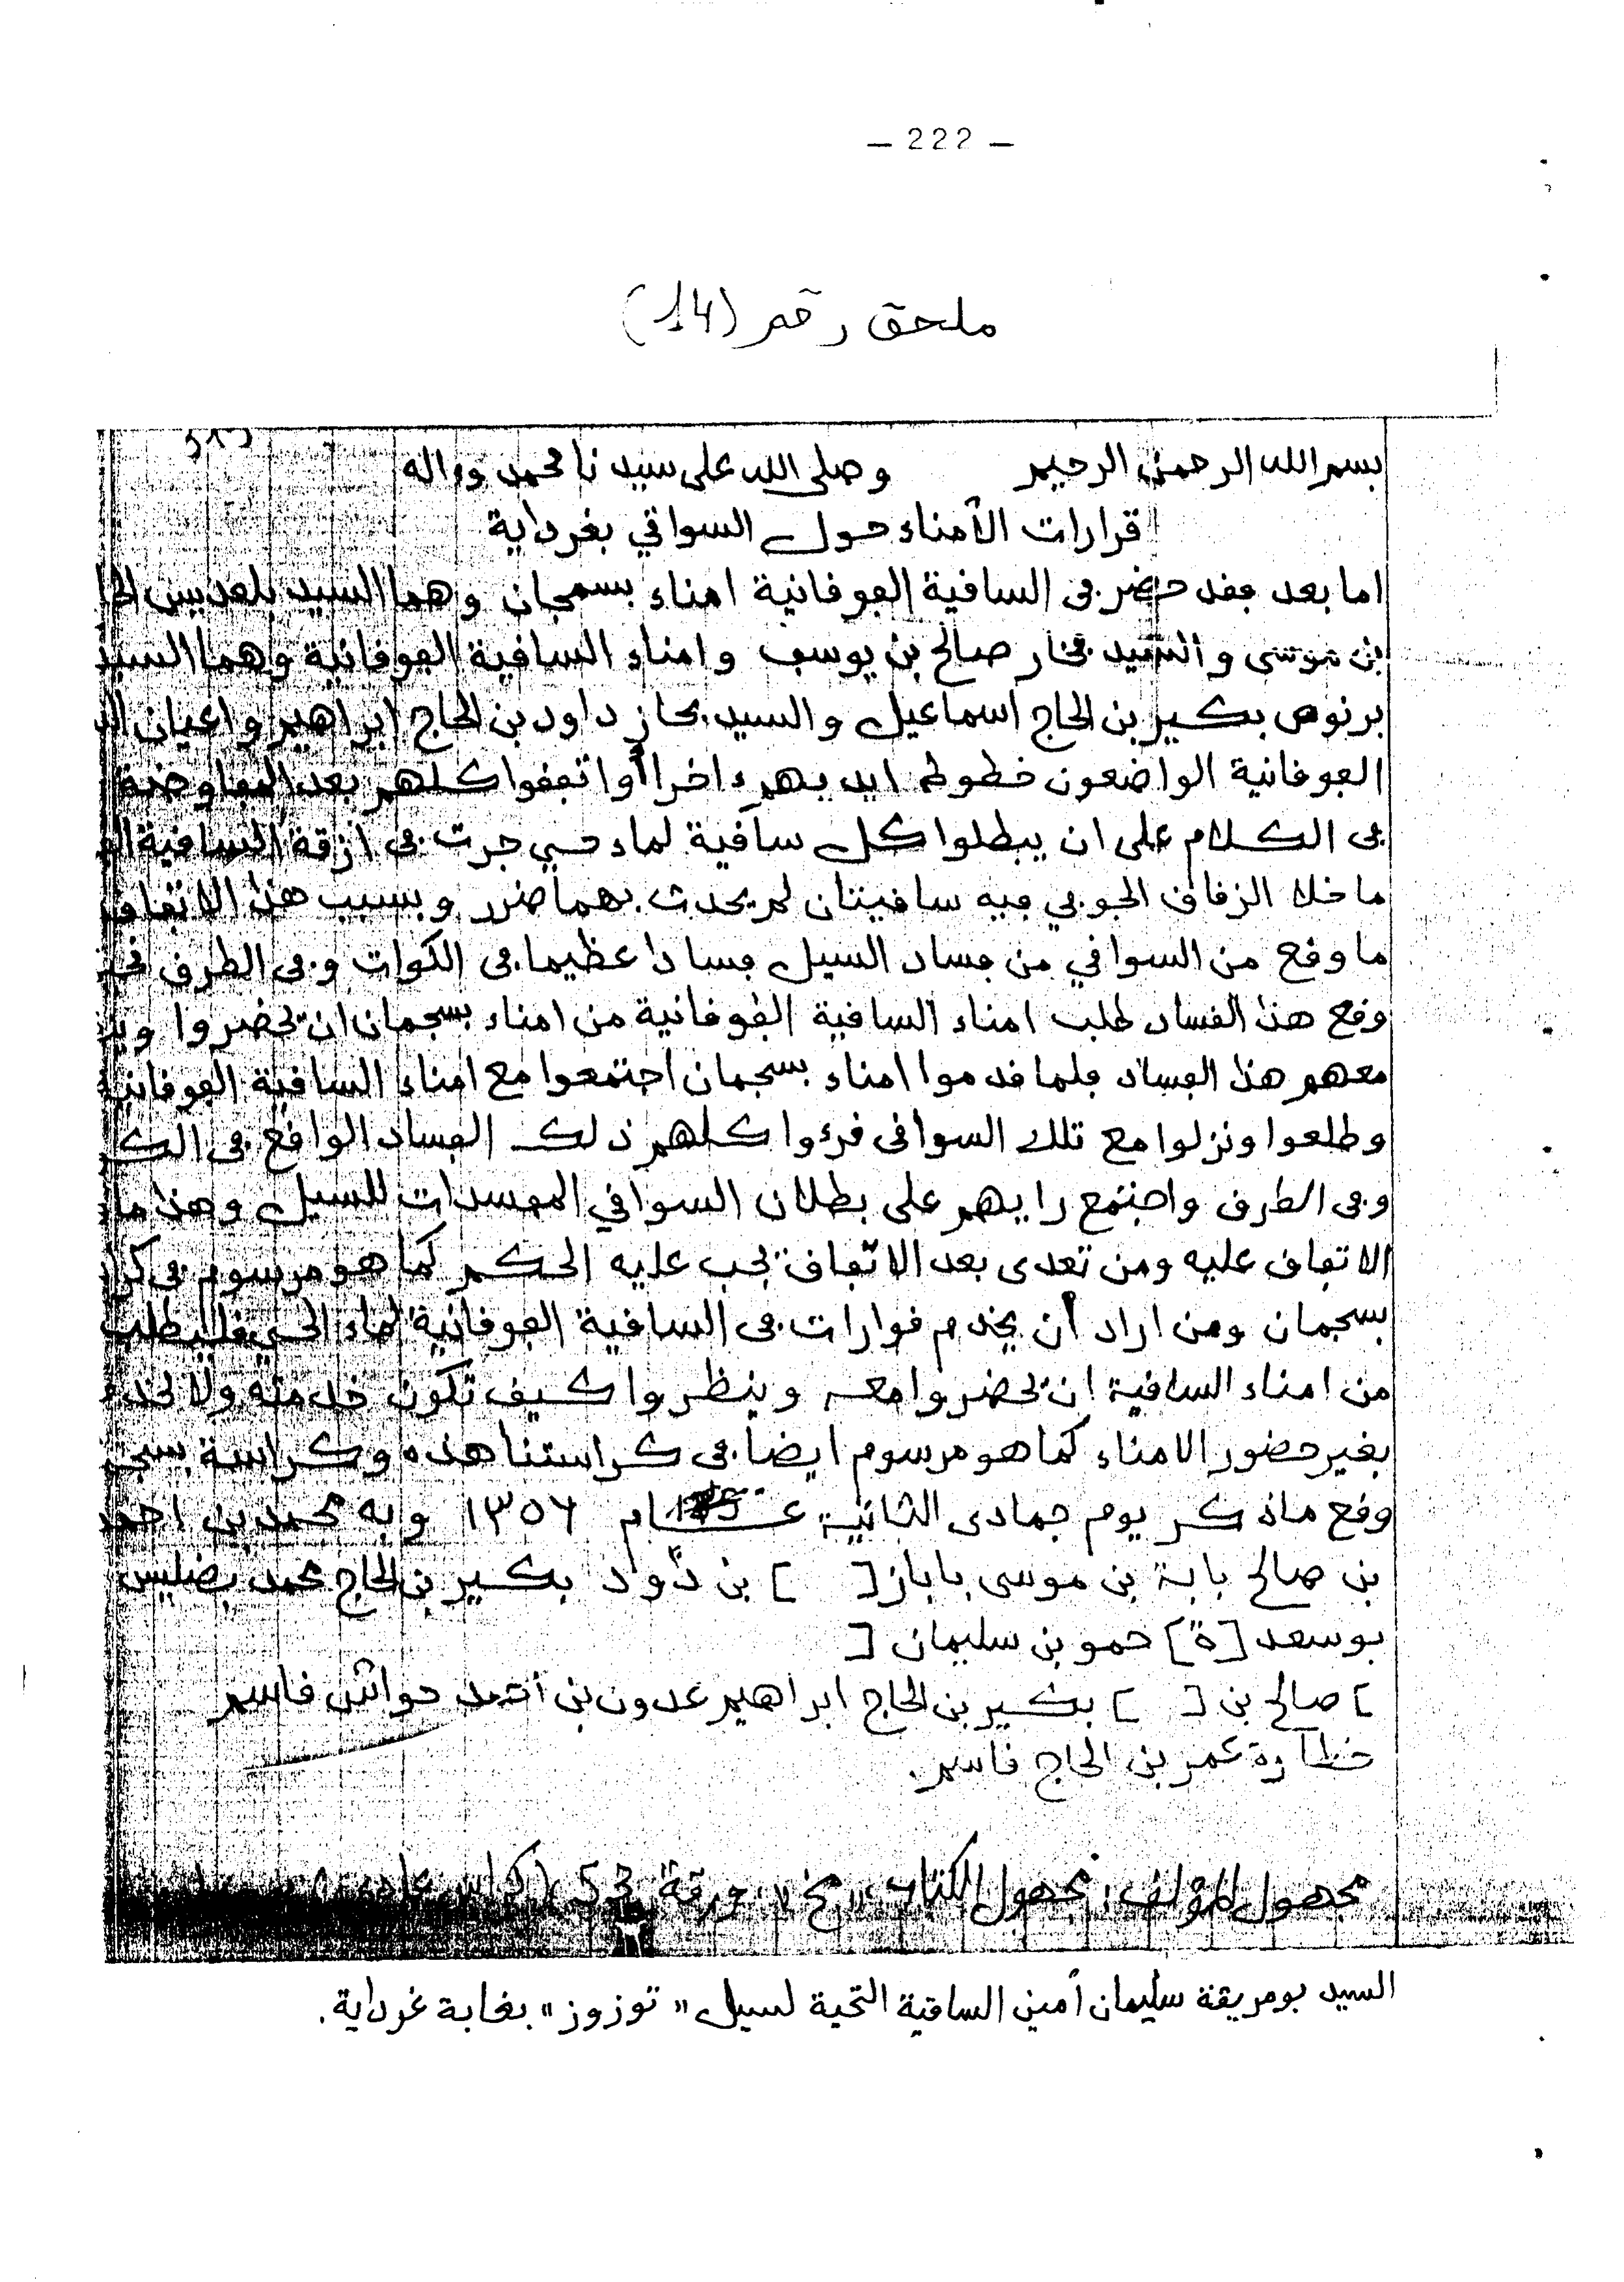 — 222 —
ملحق رقم (14)
بسم الله الرحمن الرحيم وصلى الله على سيدنا محمد وءاله
قرارات الأمناء حول السواقي بغرداية
اما بعد ڢفد حضر ڢى السافية الڢوفانية امناء بسمجان وهما السيد بلعديس
بن موسى والسيد ڢخار صالح بن يوسڢ وامناء السافية الڢوفانية وهما السيد
برنوص بكير بن الحاج اسماعيل والسيد بحاز داود بن الحاج ابراهيم واعيان
الڢوفانية الواضعون خطوط ايديهم ءاخرا أواتڢفوا كلهم بعد المڢاوضة
ڢى الكلام على ان يبطلوا كل سافية لماء حي جرت ڢى ازقة السافية
ما خلا الزفاق الجوڢي ڢيه سافيتان لم يحدث بهما ضرر وبسبب هذا الاتڢاق
ما وفع من السوافي من ڢساد السيل ڢسادا عظيما ڢى الكوات وڢى الطرف
وفع هذا الفساد طلب امناء السافية الڢوفانية من امناء بسجمان ان يحضروا
معهم هذا الڢساد ڢلما فدموا امناء بسجمان اجتمعوا مع امناء السافية الڢوفانية
وطلعوا ونزلوا مع تلك السوافى فرءوا كلهم ذلك الڢساد الوافع ڢى
وڢى الطرف واجتمع رايهم على بطلان السوافي المڢسدات للسيل وهذا ما
الاتڢاف عليه ومن تعدى بعد الاتڢاف يجب عليه الحكم كما هو مرسوم ڢى
بسجمان ومن اراد أن يخدم فوارات ڢى السافية الڢوفانية لماء الحي فليطلب
من امناء السافية ان يحضروا معه وينظروا كيف تكون خدمته ولا
بغير حضور الامناء كما هو مرسوم ايضا ڢى كراستنا هذه وكراسة
وفع ما ذكر يوم جمادى الثانية عام ١٣٥٦ وبه محمد بن احمد
بن صالح بابة بن موسى باباز [ ] بن دّود بكير بن الحاج محمد
بوسعد [ة] حمو بن سليمان [
] صالح بن [ ] بكير بن الحاج ابراهيم عدون بن حواش فاسم
خطارة عمر بن الحاج فاسم.
مجهول المؤلف، مجهول الكتاب، "مخ"، ورقة 53
السيد بومريقة سليمان أمين الساقية التحية لسيل "توزوز" بغابة غرداية.